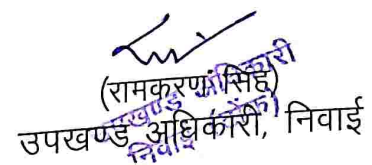 (रामकरण सिंह)
उपखण्ड अधिकारी, निवाई
उपखण्ड अधिकारी
निवाई (टोंक)